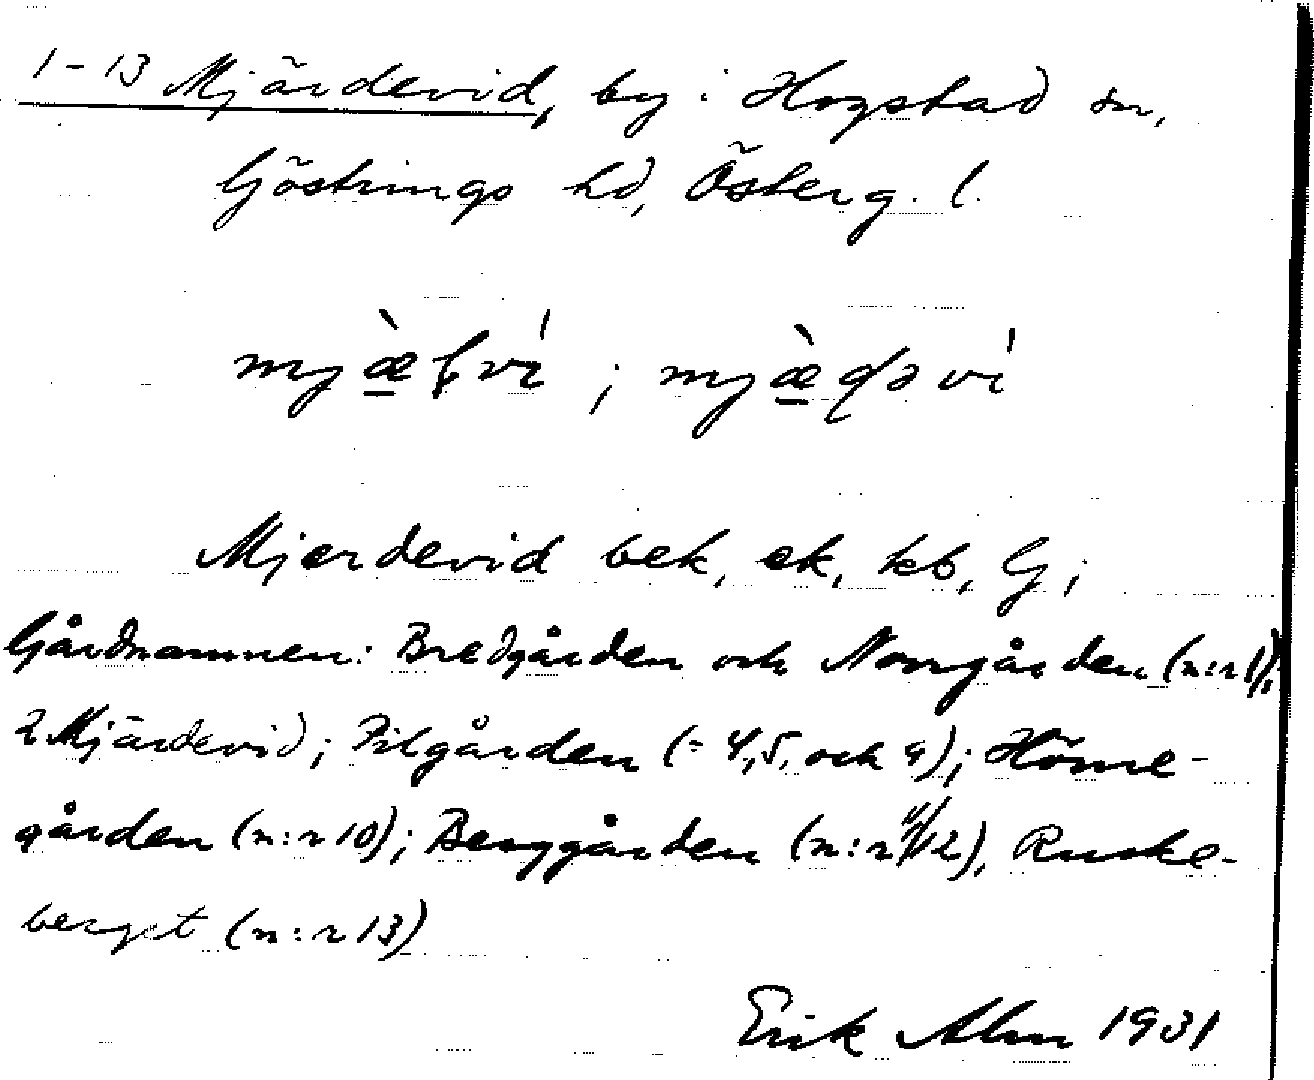 1-13 Mjärdevid, by i Hogstad sn,
Göstrings hd, Österg. l.
Mjerdevid bek, ek, kb, G;
Gårdnamnen: Bredgården och Norrgården (n:r 1),
2 Mjärdevid; Pilgården (= 4, 5, och 9); Hörne-
gården (n:r 10); Berggården (n:r 12), Ruske-
berget (n:r 13)
Erik Alm 1931